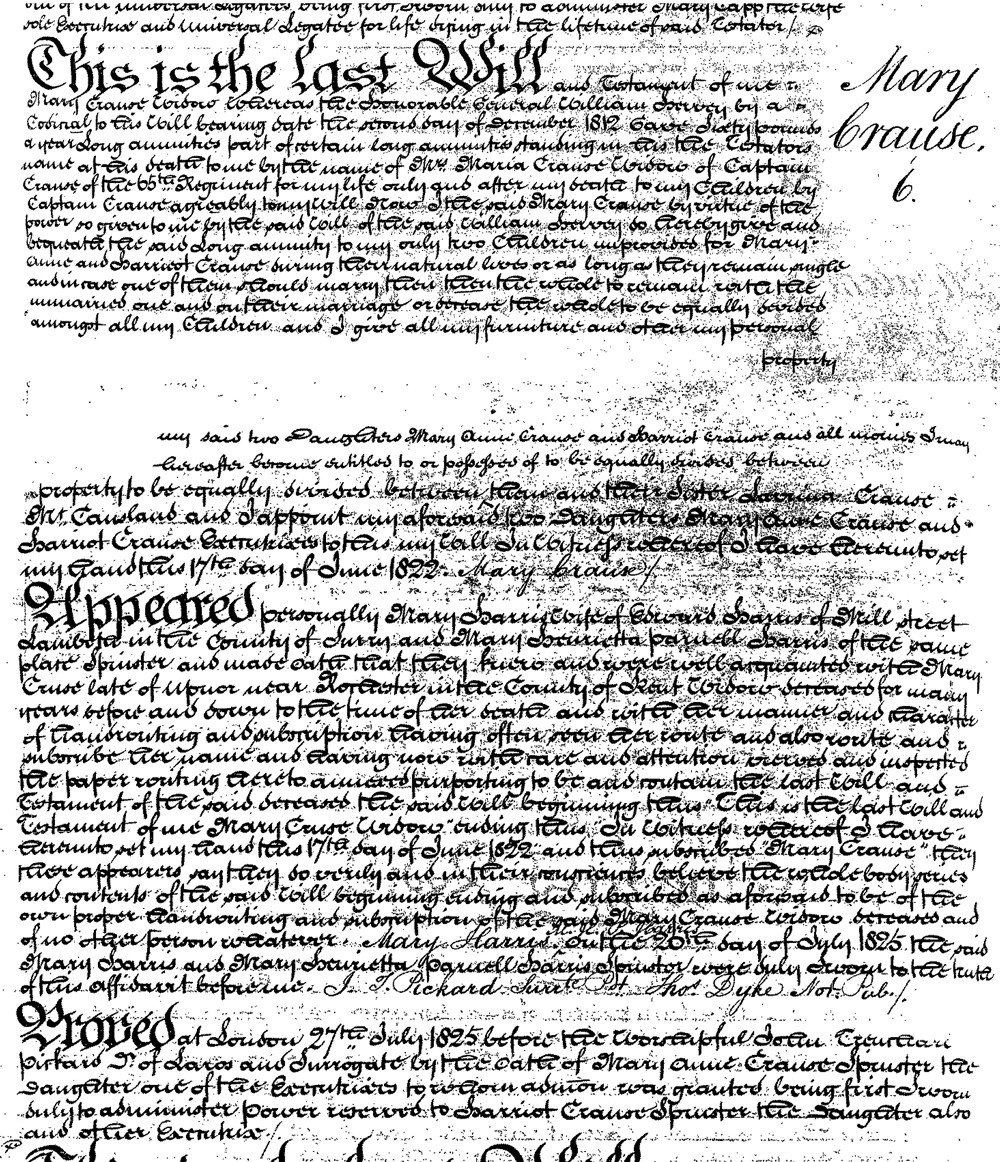 out of ten universal Legatees being first sworn duly to administer Mary Capp the Wife
sole Executrix and Universal Legatee for life dying in the lifetime of said Testator /.
This is the last Will and Testament of me
Mary Crause Widow Whereas the Honorable General William Hervey by a
Codicial to his Will bearing date the second day of December 1812 Gave Sixty pounds
a year Long annuities part of certain long annuities standing in his the Testators
name at his death to me by the name of Mrs. Maria Crause Widow of Captain
Crause of the 65th Regiment for my life only and after my death to my Children by
Captain Crause agreably to my Will Now I the said Mary Crause by virtue of the
power so given to me by the said Will of the said William Hervey do hereby give and
bequeath the said Long annuity to my only two Children unprovided for Mary
Anne and Harriot Crause during their natural lives or as long as they remain single
and in case one of them should marry then then the whole to remain with the
unmarried one and on their marriage or decease the whole to be equally divided
amongst all my Children and I give all my furniture and other my personal
property
Mary
Crause.
6.
my said two Daughters Mary Anne Crause and Harriot Crause and all monies I may
hereafter become entitled to or possessed of to be equally divided between
property to be equally divided between them and their Sister Crause
Mc. Causland and I appoint my aforesaid two Daughters Mary Anne Crause and
Harriot Crause Executrixes to this my Will In Witness whereof I have hereunto set
my hand this 17th day of June 1822. Mary Crause /
Appeared personally Mary Harris Wife of Edward Harris of Mill Street
Lambeth in the County of Surry and Mary Henrietta Parnell Harris of the same
place Spinster and made oath that they knew and were well acquainted with Mary
Cruse late of Upnor near Rochester in the County of Kent Widow deceased for many
years before and down to the time of her death and with her manner and character
of handwriting and subscription having often seen her write and also write and
subscribe her name and having now with care and attention viewed and inspected
the paper writing hereto annexed purporting to be and contain the last Will and
Testament of the said deceased the said Will beginning thus "This is the last Will and
Testament of me Mary Cruse Widow" ending thus "In Witness whereof I have
hereunto set my hand this 17th day of June 1822" and thus subscribed "Mary Crause" they
these appearers say they do verily and in their consciences believe the whole body series
and contents of the said Will beginning ending and subscribed as aforesaid to be of the
own proper handwriting and subscription of the said Mary Crause Widow deceased and
of no other person whatever. Mary Harris. On the 26th day of July 1825 the said
Mary Harris and Mary Henrietta Parnell Harris Spinster were duly sworn to the truth
of this affidavit before me. J. T. Pickard Surrte. Pt. Thos. Dyke Not. Pub. /.
Proved at London 27th July 1825 before the Worshipful John Trenchard
Pickard Dr. of Laws and Surrogate by the Oath of Mary Anne Crause Spinster the
Daughter one of the Executrixes to whom admon was granted being first sworn
duly to administer Power reserved to Harriot Crause Spinster the Daughter also
and other Executrix /.